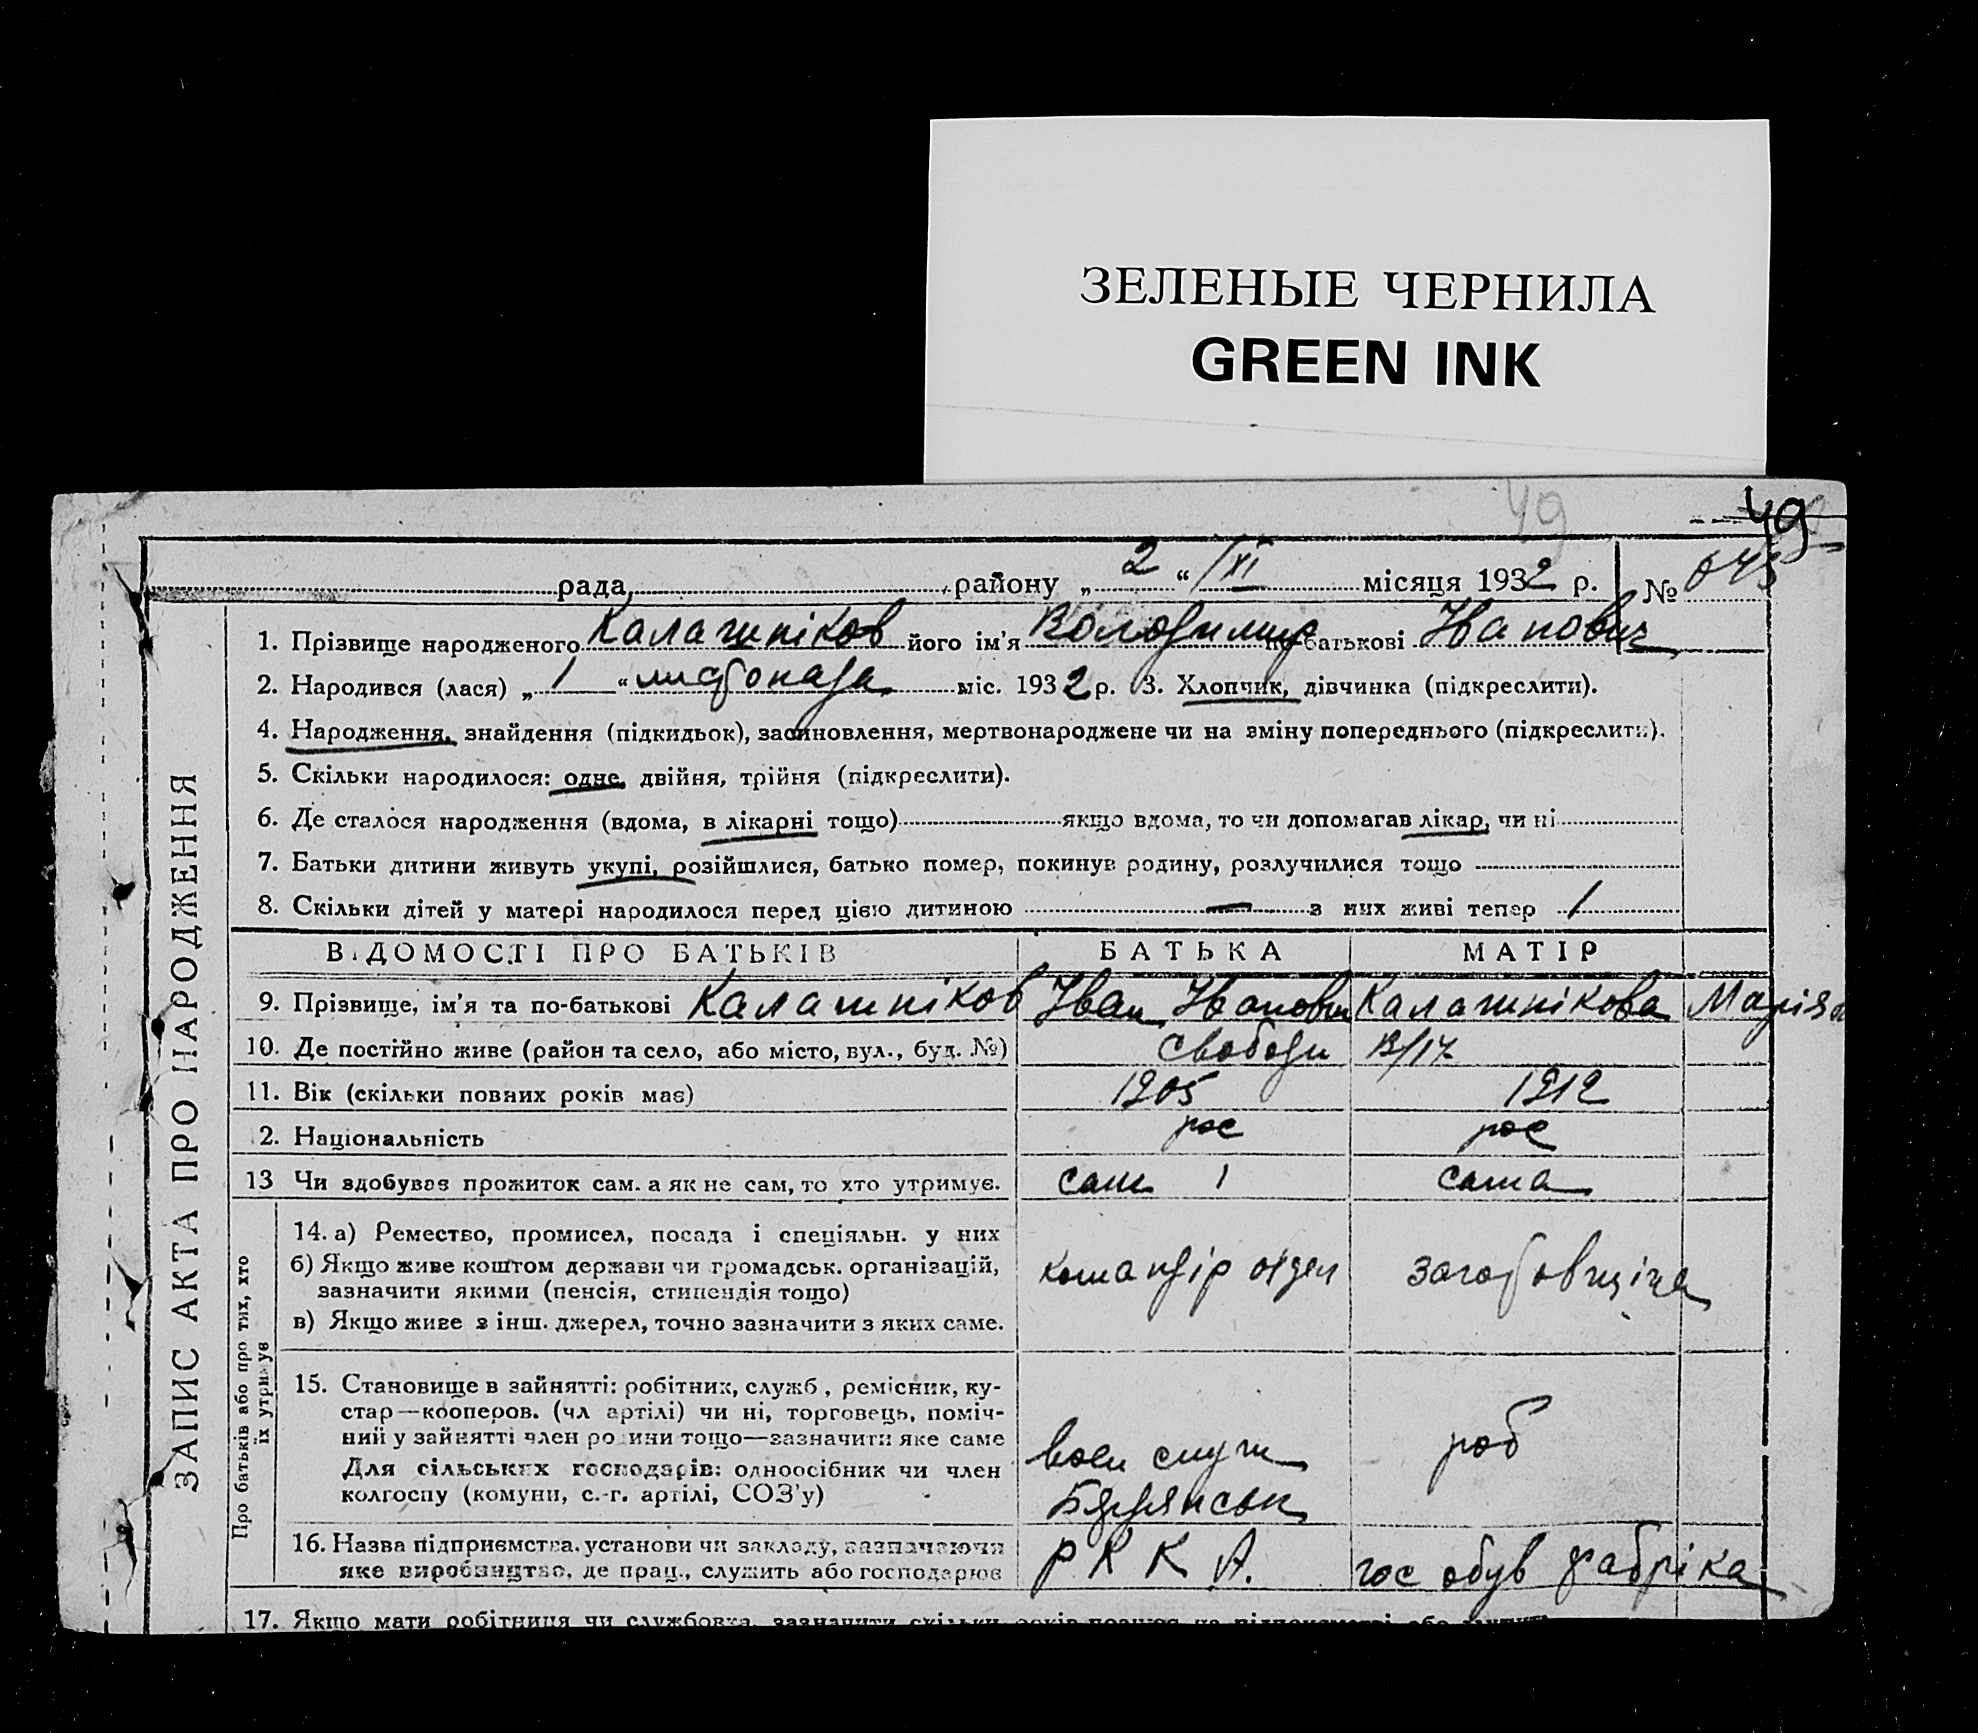 ЗЕЛЕНЫЕ ЧЕРНИЛА
GREEN INK
49
49
рада, району „2“ XI місяця 1932 р. № 645
1. Прізвище народженого Калашніков його ім'я Володимир по-батькові Іванович
2. Народився (лася) „1“ листопада міс. 1932 р. 3. Хлопчик, дівчинка (підкреслити).
4. Народження, знайдення (підкидьок), засиновлення, мертвонароджене чи на зміну попереднього (підкреслити).
5. Скільки народилося: одне, двійня, трійня (підкреслити).
6. Де сталося народження (вдома, в лікарні тощо) якщо вдома, то чи допомагав лікар, чи ні
7. Батьки дитини живуть укупі, розійшлися, батько помер, покинув родину, розлучилися тощо
8. Скільки дітей у матері народилося перед цією дитиною — з них живі тепер 1
ВІДОМОСТІ ПРО БАТЬКІВ БАТЬКА МАТІР
9. Прізвище, ім'я та по-батькові Калашніков Іван Іванович Калашнікова Марія
10. Де постійно живе (район та село, або місто, вул., буд. №) Свободи 13/17
11. Вік (скільки повних років має) 1905 1912
2. Національність рос рос
13 Чи здобував прожиток сам. а як не сам, то хто утримує. сам 1 сама
14. а) Ремество, промисел, посада і спеціяльн. у них
б) Якщо живе коштом держави чи громадськ. організацій,
зазначити якими (пенсія, стипендія тощо)
в) Якщо живе з інш. джерел, точно зазначити з яких саме.
командір отдел заготовщіца
15. Становище в зайнятті: робітник, служб., ремісник, ку-
стар—кооперов. (чл артілі) чи ні, торговець, поміч-
ний у зайнятті член родини тощо—зазначити яке саме
Для сільських господарів: одноосібник чи член
колгоспу (комуни, с.-г. артілі, СОЗ'у)
воен служ роб
Бердянськ
16. Назва підприємства, установи чи закладу, зазначаючи
яке виробництво, де прац., служить або господарює
Р К К А. гос обув фабріка
17. Якщо мати робітниця чи службовка, зазначити скільки років працює на підприємстві або
ЗАПИС АКТА ПРО НАРОДЖЕННЯ
Про батьків або про тих, хто
їх утримує